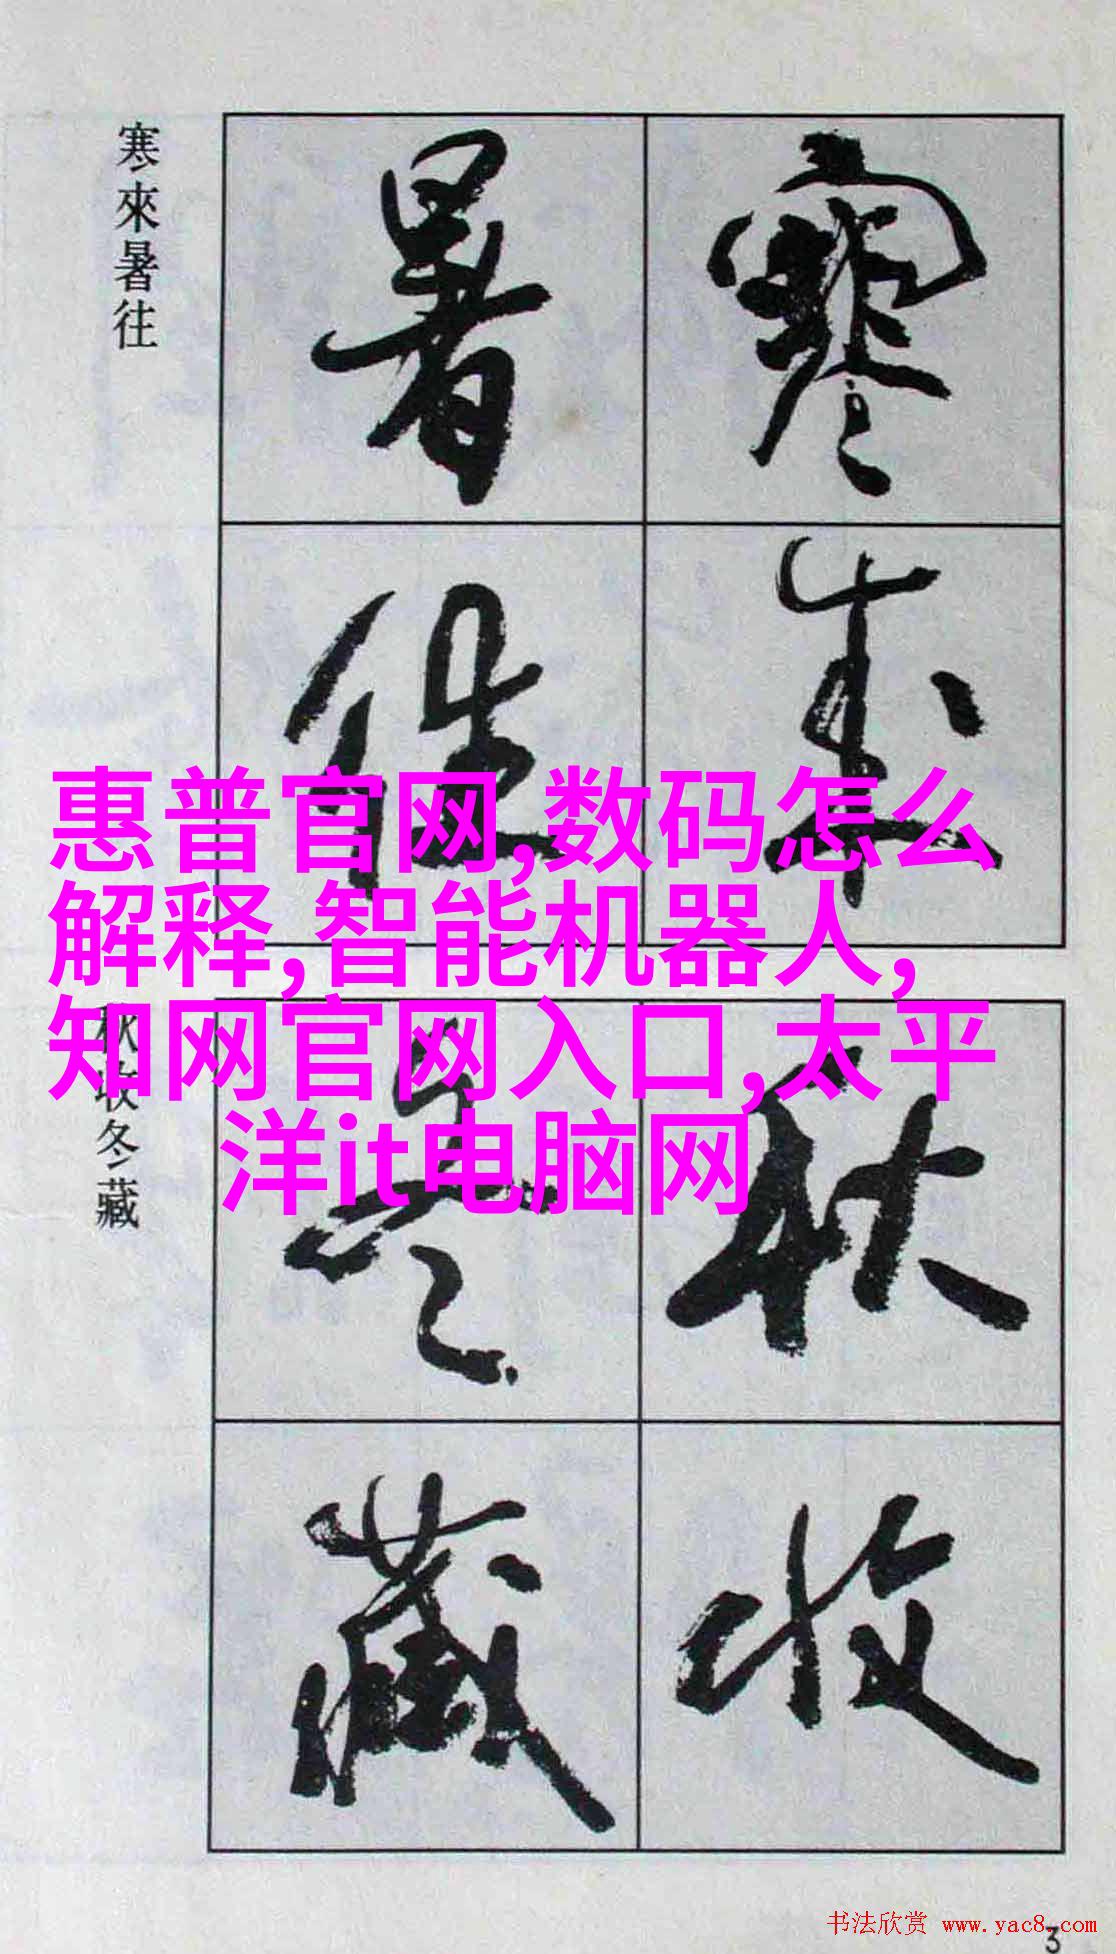 寒來暑往
寒來
暑往
惠普官网,数码怎么
解释,智能机器人,
知网官网入口,太平
洋it电脑网
秋收冬藏
秋收
冬藏
书法欣赏 www.yac8.com
3